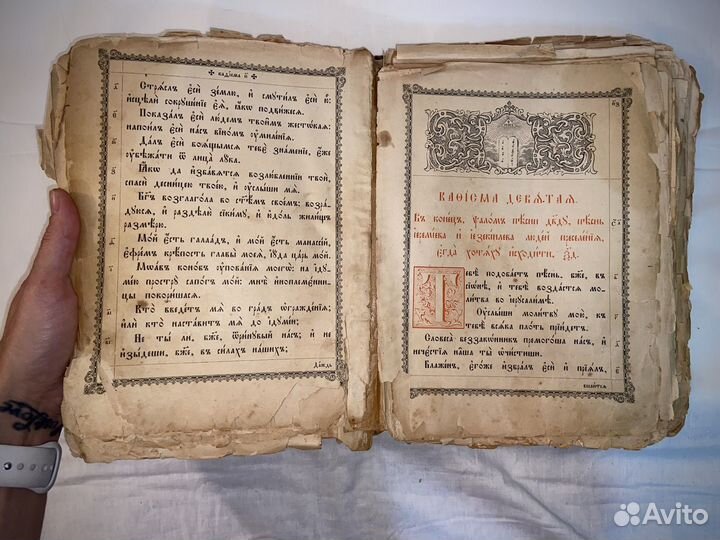 ✠ каѳі́сма и҃ ✠
Стрѧ́слъ є҆сѝ зе́млю, и҆ смꙋти́лъ є҆сѝ ю҆̀:
и҆сцѣлѝ сокрꙋшє́нїѧ є҆ѧ̀, ꙗ҆́кѡ подви́жесѧ.
Показа́лъ є҆сѝ лю́демъ твои̑мъ жестѡ́каѧ:
напои́лъ є҆сѝ на́съ вїно́мъ ᲂу҆миле́нїѧ.
Да́лъ є҆сѝ боѧ́щымсѧ тебє̀ зна́менїе, є҆́же
ᲂу҆бѣжа́ти ѿ лица̀ лꙋ́ка.
Ꙗ҆́кѡ да и҆зба́вѧтсѧ возлю́бленнїи твоѝ,
спасѝ десни́цею твое́ю, и҆ ᲂу҆слы́ши мѧ̀.
Бг҃ъ возглаго́ла во ст҃ѣ́мъ свое́мъ: возра́-
дꙋюсѧ, и҆ раздѣлю̀ сїкі́мꙋ, и҆ ю҆до́ль жили́щъ
размѣ́рю.
Мо́й є҆́сть галаа́дъ, и҆ мо́й є҆́сть манассі́й,
є҆фре́мъ крѣ́пость главы̀ моеѧ̀, і҆ꙋ́да ца́рь мо́й.
Мѡа́въ коно́бъ ᲂу҆пова́нїѧ моегѡ̀: на і҆дꙋ-
ме́ю прострꙋ̀ сапо́гъ мо́й: мнѣ̀ и҆ноплеме́нни-
цы покори́шасѧ.
Кто̀ введе́тъ мѧ̀ во гра́дъ ѡ҆гражде́нїѧ;
и҆лѝ кто̀ наста́витъ мѧ̀ до і҆дꙋме́и;
Не ты́ ли, бж҃е, ѿри́нꙋвый на́съ; и҆ не
и҆зы́деши, бж҃е, въ си́лахъ на́шихъ;
Да́ждь
КАѲІ́СМА ДЕВѦ́ТАѦ.
Въ коне́цъ, ѱало́мъ пѣ́сни дв҃дꙋ, пѣ́снь
і҆еремі́ева и҆ і҆езекі́илева люді́й преселе́нїѧ,
є҆гда̀ хотѧ́хꙋ и҆сходи́ти, ѯ҃д.
Тебѣ̀ подоба́етъ пѣ́снь, бж҃е, въ
сїѡ́нѣ, и҆ тебѣ̀ возда́стсѧ мо-
ли́тва во і҆ерꙋсали́мѣ.
Оу҆слы́ши моли́твꙋ мою̀, къ
тебѣ̀ всѧ́ка пло́ть прїи́детъ.
Словеса̀ беззако́нникъ премого́ша на́съ, и҆
нече́стїѧ на̑ша ты̀ ѡ҆чи́стиши.
Бла́женъ, є҆го́же и҆збра́лъ є҆сѝ и҆ прїѧ́лъ,
всели́тсѧ
Avito